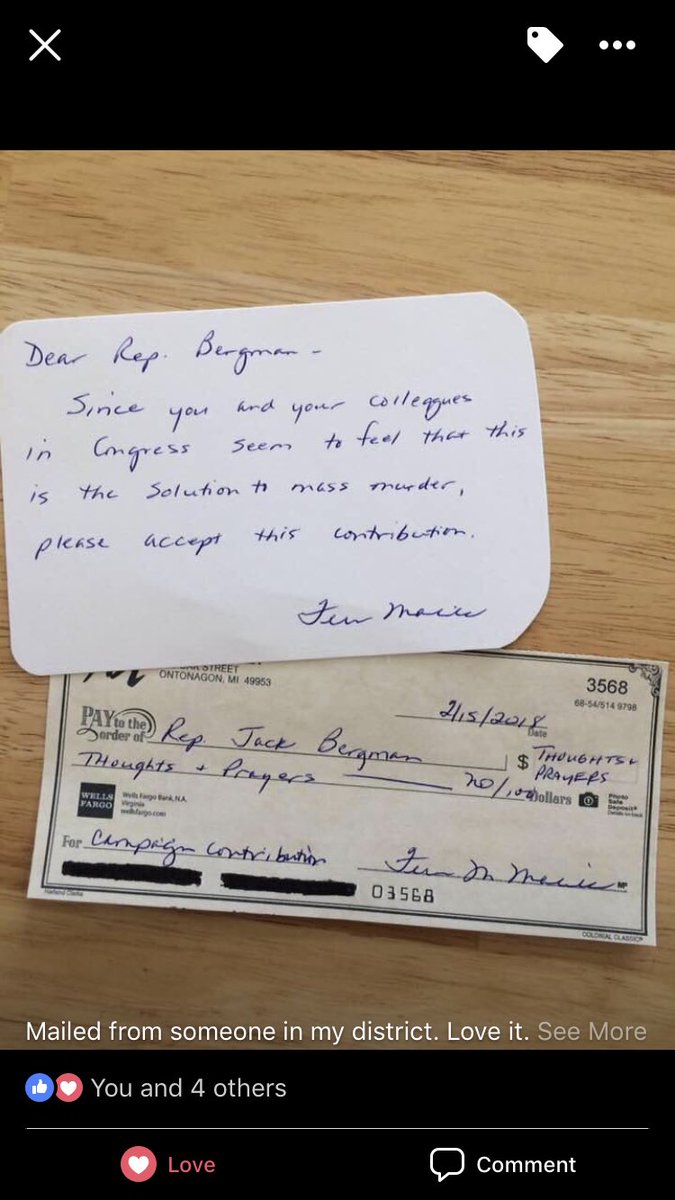 Dear Rep. Bergman -
Since you and your colleagues
in Congress seem to feel that this
is the solution to mass murder,
please accept this contribution.
STREET
ONTONAGON, MI 49953
3568
68-54/514 9798
2/15/2018
Date
PAY to the order of Rep. Jack Bergman $ THOUGHTS + PRAYERS
Thoughts + Prayers no/100 Dollars
Photo Safe Deposit® Details on back
WELLS FARGO
Wells Fargo Bank, N.A.
Virginia
wellsfargo.com
For Campaign Contribution
MP
03568
Harland Clarke
COLONIAL CLASSIC®
Mailed from someone in my district. Love it. See More
You and 4 others
Love
Comment